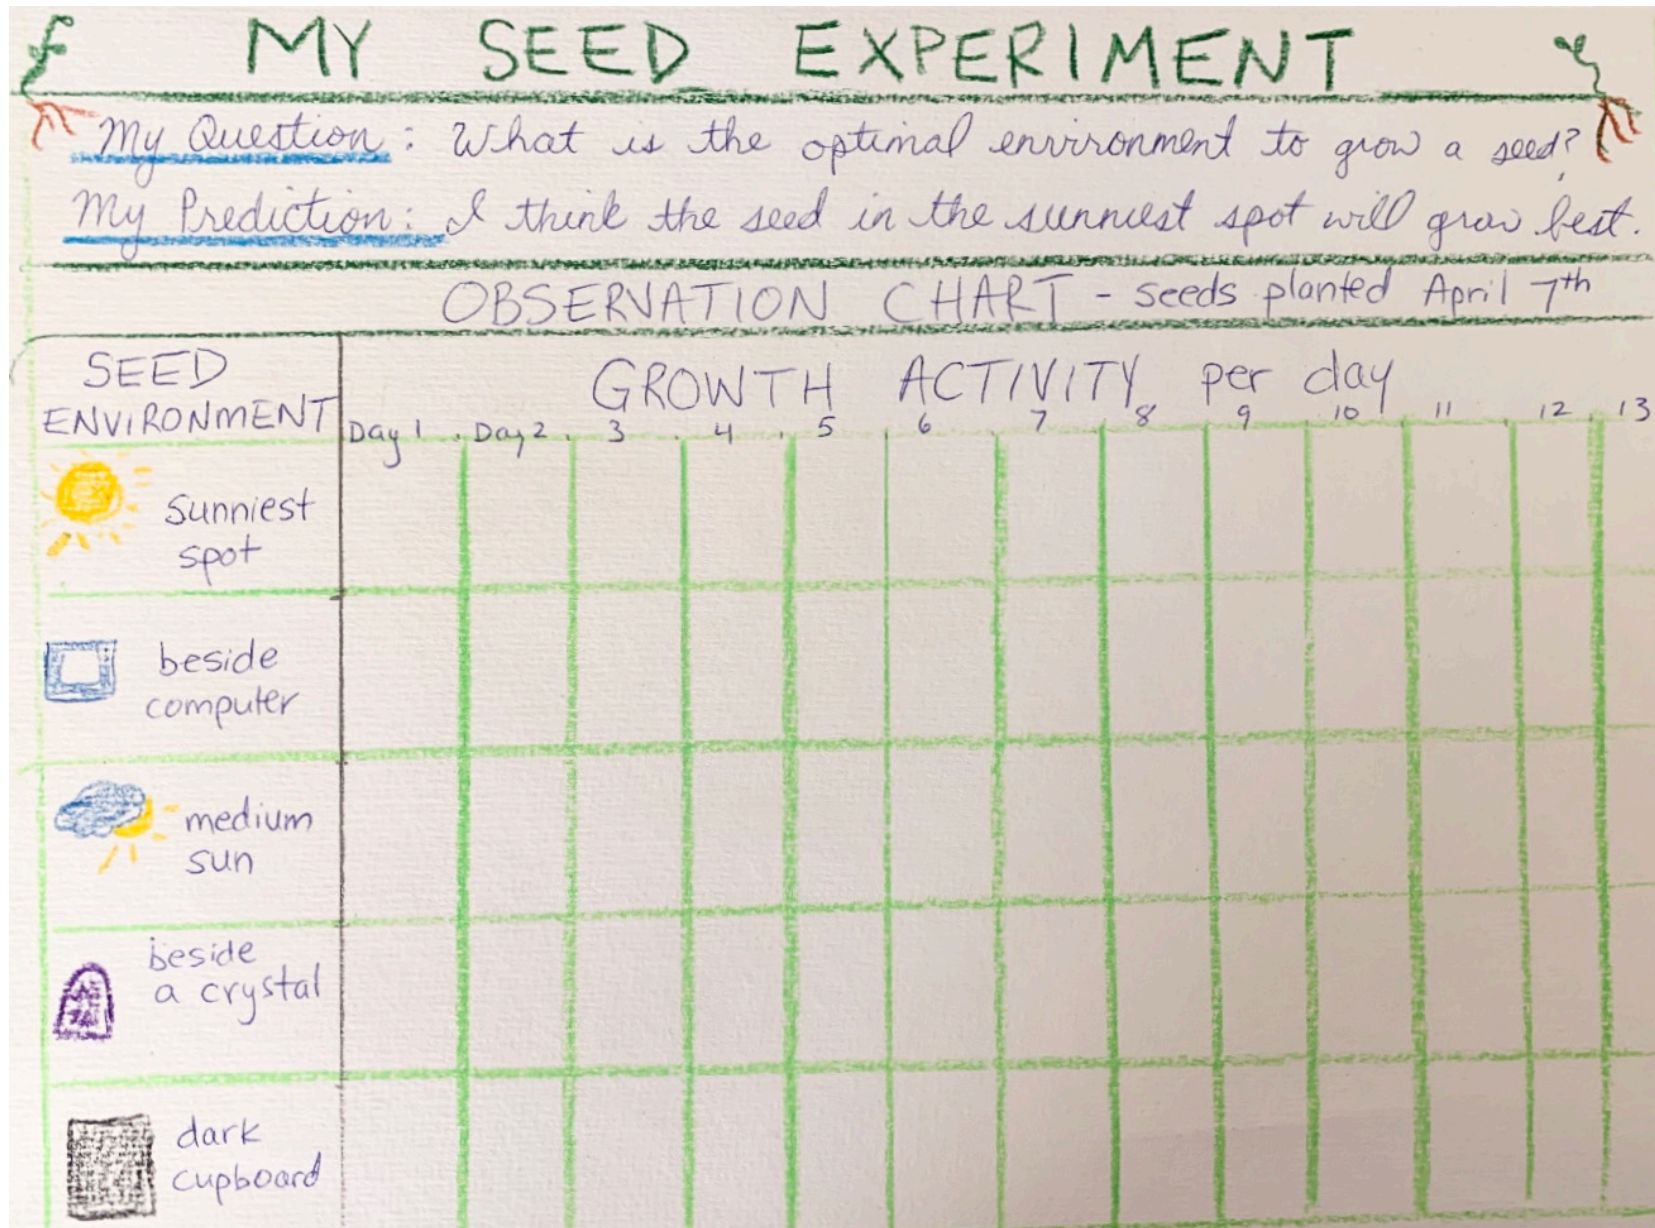 MY SEED EXPERIMENT
My Question: What is the optimal environment to grow a seed?
My Prediction: I think the seed in the sunniest spot will grow best.
OBSERVATION CHART - seeds planted April 7th
SEED
ENVIRONMENT
GROWTH ACTIVITY per day
Day 1 Day 2 3 4 5 6 7 8 9 10 11 12 13
sunniest
spot
beside
computer
medium
sun
beside
a crystal
dark
cupboard